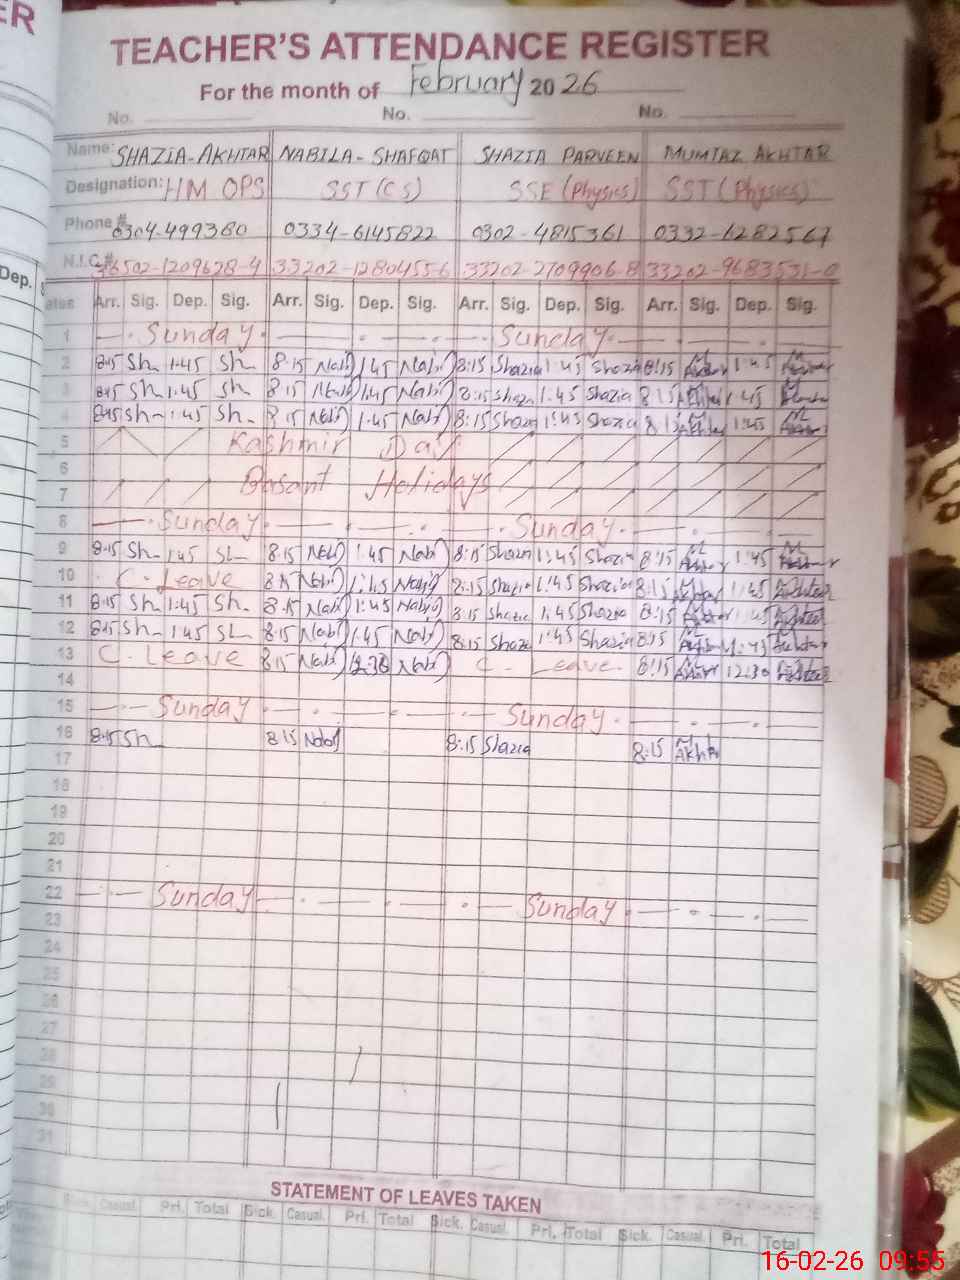 ER
TEACHER'S ATTENDANCE REGISTER
For the month of February 2026
No. No. No.
Name: SHAZIA-AKHTAR NABILA-SHAFQAT SHAZIA PARVEEN MUMTAZ AKHTAR
Designation: HM OPS SST (CS) SSE (Physics) SST (Physics)
Phone # 0304-499380 0334-6145822 0302-4815361 0332-6282567
N.I.C.# 36502-1209628-4 33202-1280455-6 33202-2709906-8 33202-9683531-0
Dep.
ates Arr. Sig. Dep. Sig. Arr. Sig. Dep. Sig. Arr. Sig. Dep. Sig. Arr. Sig. Dep. Sig.
1 Sunday Sunday
2 8:15 Sh 1:45 Sh 8:15 Nabi 1:45 Nabi 8:15 Shazia 1:45 Shazia 8:15 1:45
3 8:15 Sh 1:45 Sh 8:15 Nabi 1:45 Nabi 8:15 Shazia 1:45 Shazia 8:15 1:45
4 8:15 Sh 1:45 Sh 8:15 Nabi 1:45 Nabi 8:15 Shazia 1:45 Shazia 8:15 1:45
5 Kashmir Day
6
7 Basant Holidays
8 Sunday Sunday
9 8:15 Sh 1:45 Sh 8:15 Nabi 1:45 Nabi 8:15 Shazia 1:45 Shazia 8:15 1:45
10 C. Leave 8:15 Nabi 1:45 Nabi 8:15 Shazia 1:45 Shazia 8:15 1:45 Akhtar
11 8:15 Sh 1:45 Sh 8:15 Nabi 1:45 Nabi 8:15 Shazia 1:45 Shazia 8:15 1:45 Akhtar
12 8:15 Sh 1:45 Sh 8:15 Nabi 1:45 Nabi 8:15 Shazia 1:45 Shazia 8:15 1:45 Akhtar
13 C. Leave 8:15 Nabi 12:30 Nabi C. Leave 8:15 12:30 Akhtar
14
15 Sunday Sunday
16 8:15 Sh 8:15 Nabi 8:15 Shazia 8:15 M Akht
17
18
19
20
21
22 Sunday Sunday
23
24
25
26
27
28
29
30
31
STATEMENT OF LEAVES TAKEN
Sick. Casual. Pri. Total Sick. Casual. Pri. Total Sick. Casual. Pri. Total Sick. Casual. Pri. Total
16-02-26 09:55